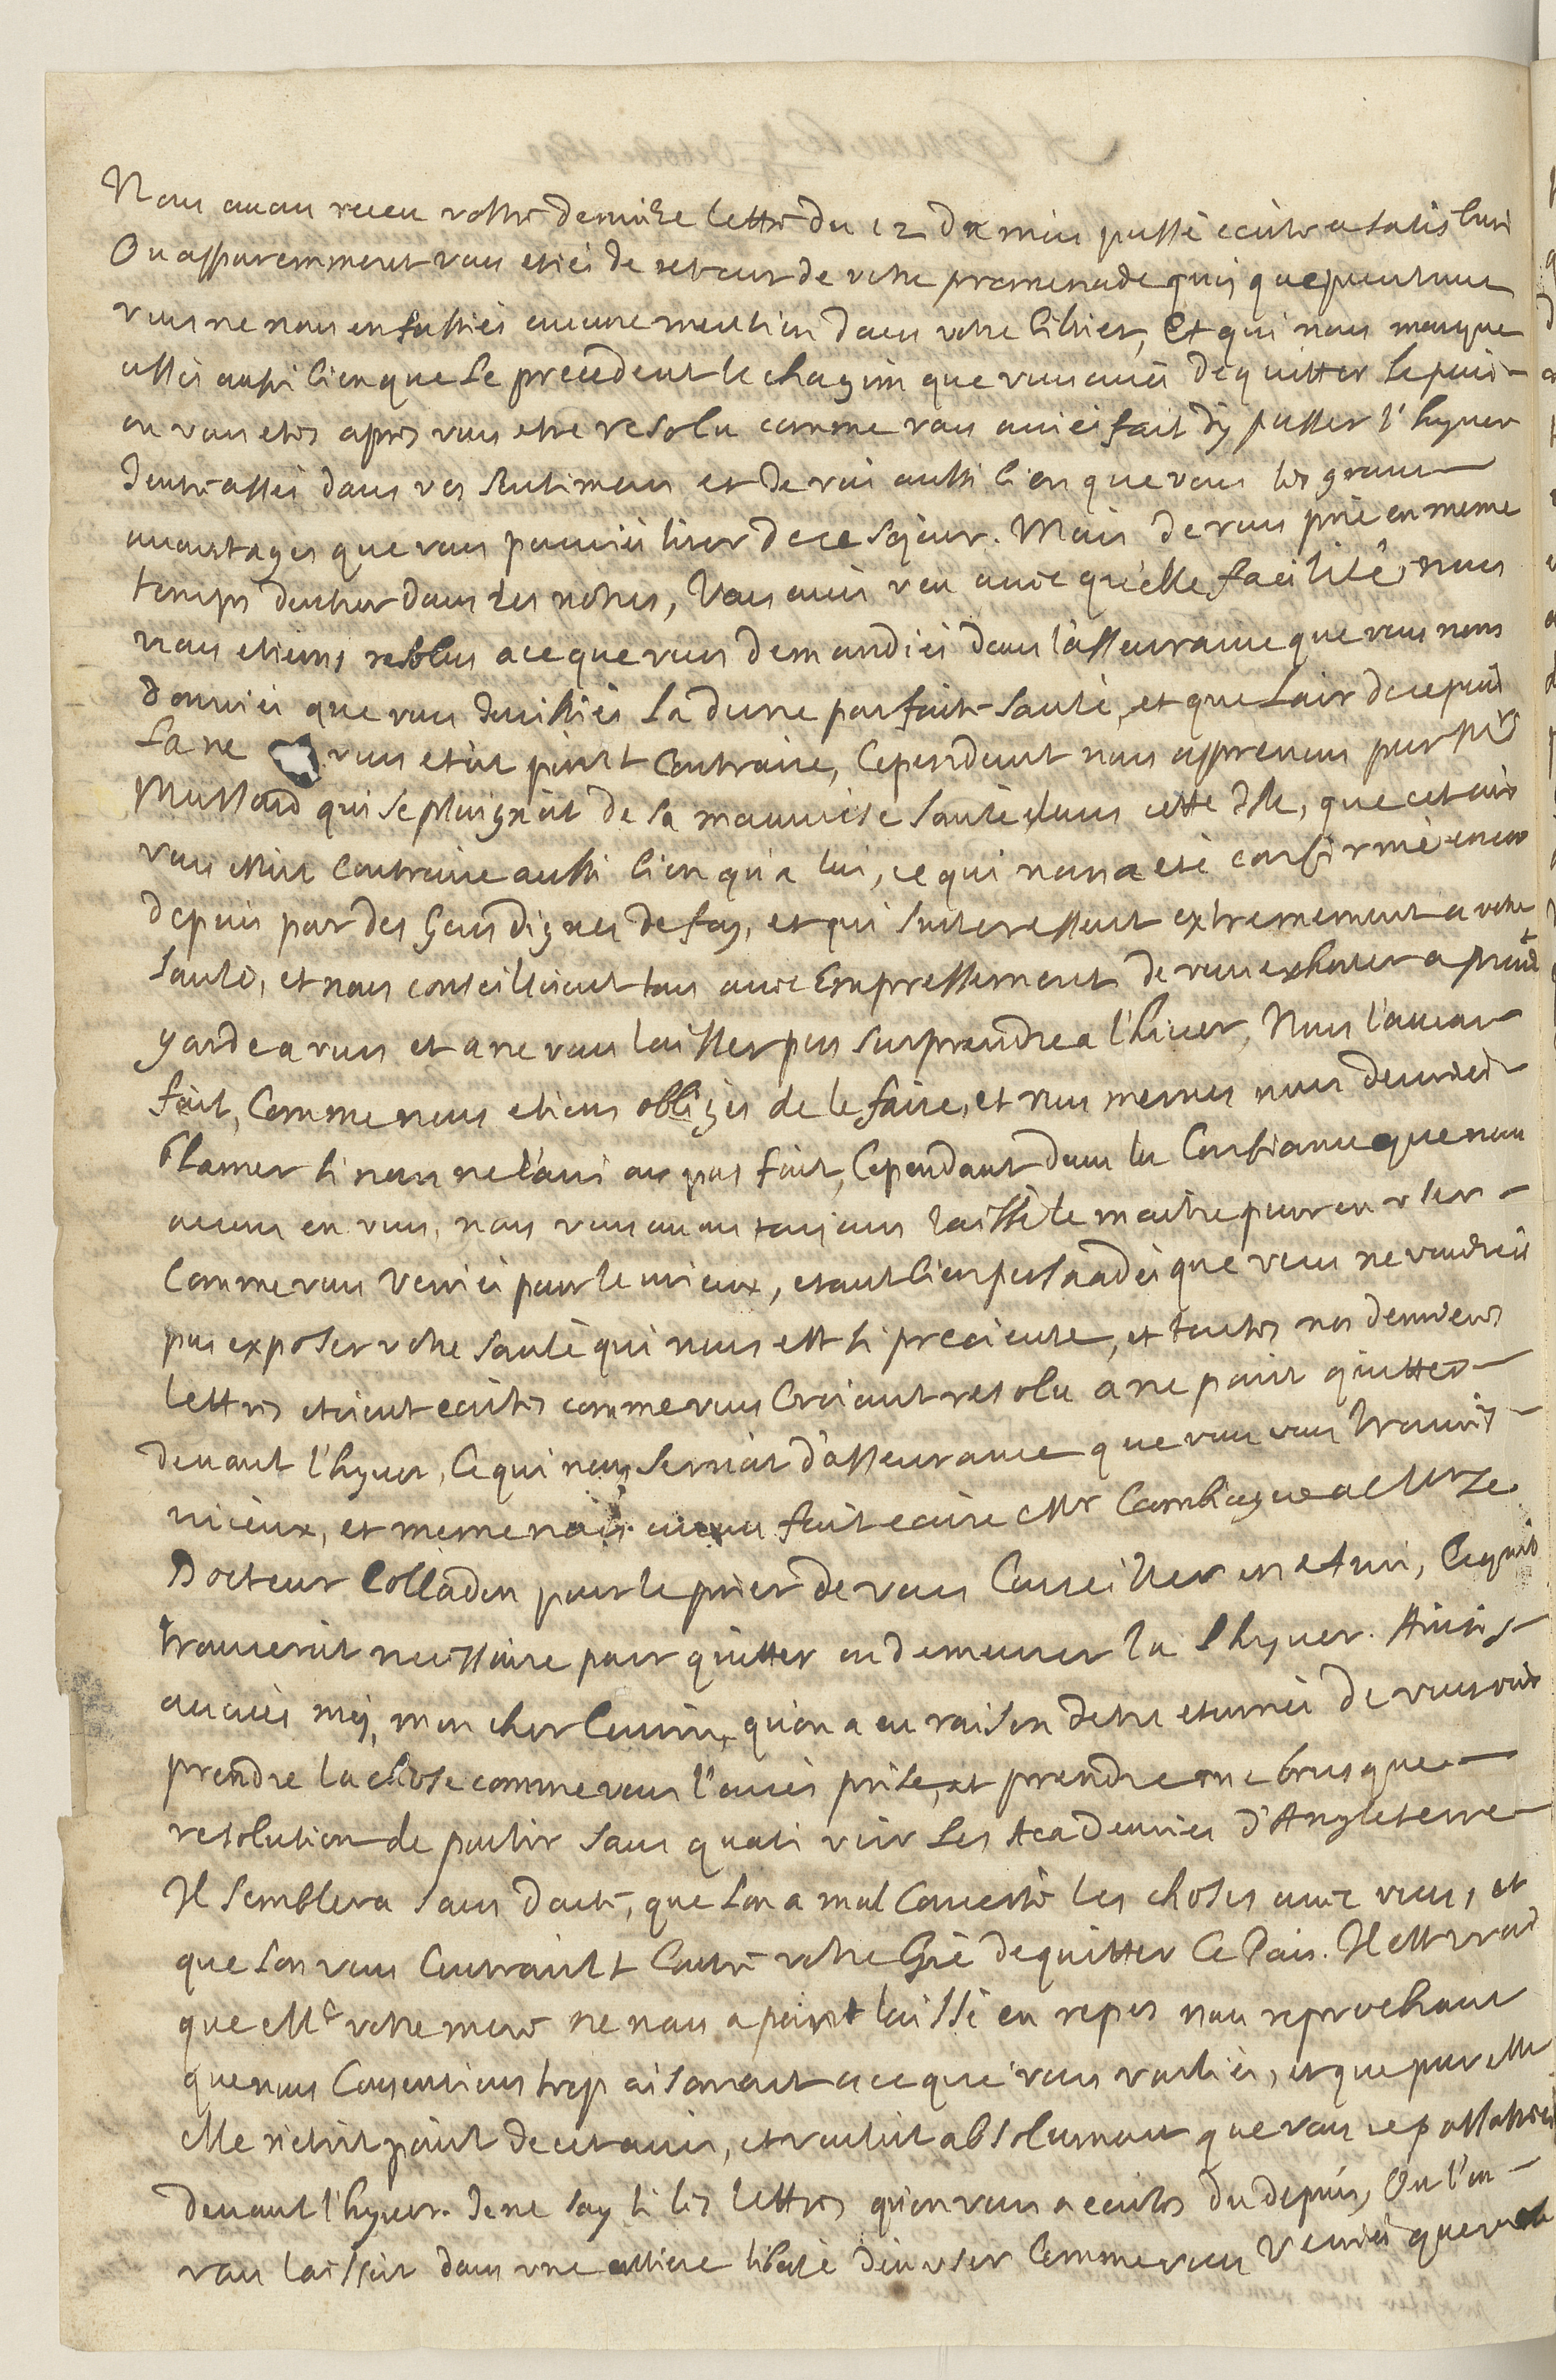 Nous auons receu vostre derniere lettre du 12 du mois passé ecrite a Salisburi
Ou apparemment vous etiés de retour de votre promenade quoi que pourtant
vous ne nous en fassiés aucune mention dans votre billiet, Et qui nous marque
assés aussi bien que le precedent le chagrin que vous aués de quitter le païs
ou vous etes apres vous etre resolu comme vous auiés fait d'y passer l'hyuer
J'entre assés dans vos sentimens et Je voi aussi bien que vous les grans
auantages que vous pouuiés tirer de ce sejour. Mais Je vous prie en meme
temps d'entrer dans les notres, Vous aués veu auec quelle facilité nous
nous etions resolus a ce que vous demandiés dans l'asseurance que vous nous
donniés que vous Jouissiés la d'une parfaite santé, et que lair de ce païs
la ne vous etoit point Contraire, Cependant nous apprenons par Mr
Mussard qui se plaignoit de sa mauuaise santé dans cette Isle, que cet air
vous etoit Contraire aussi bien qu'a lui, ce qui nous a eté confirmé encor
depuis par des Gens dignes de foy, et qui s'interessent extremement a votre
santé, et nous conseilloient tous auec Empressement de vous exhorter a prendre
garde a vous et a ne vous laisser pas surprendre a l'hiuer, Nous l'auons
fait, Comme nous etions obligés de le faire, et vous memes nous deuriés
blamer si nous ne l'auions pas fait, Cependant dans la Confiance que nous
auons en vous, nous vous auons toujours laissé le maitre pour en vser
Comme vous verriés pour le mieux, etant bien persuadés que vous ne voudriés
pas exposer votre santé qui nous est si precieuse, et toutes nos dernieres
lettres etoient ecrites comme vous Croiant resolu a ne point quitter
deuant l'hyuer, Ce qui nous seruoit d'asseurance que vous vous trouuiés
mieux, et meme nous auons fait ecrire Mr Cambiague a Mr Le
Docteur Colladon pour le prier de vous Conseiller en Ami, Ce qu'il
trouueroit necessaire pour quitter ou demeurer la l'hyuer. Ainsi
auoués moy, mon cher Cousin, qu'on a eu raison detre etonnés de vous voir
prendre la chose comme vous l'aués prise, et prendre une brusque
resolution de partir sans quasi voir les Academies d'Angleterre
Il semblera sans doute, que l'on a mal Concerté les choses auec vous, et
que l'on vous Contraint Contre votre Gré de quitter Ce Païs. Il est vrai
que Me votre mere ne nous a point laissé en repos nous reprochant
que nous Consentions trop aisement a ce que vous vouliés, et que pour elle
elle n'etoit point de cet auis, et vouloit absolument que vous repassassiés
deuant l'hyuer. Je ne say si les lettres qu'on vous a ecrites du depuis, Ou l'on
vous laissoit dans vne entiere liberté d'en vser Comme vous verriés